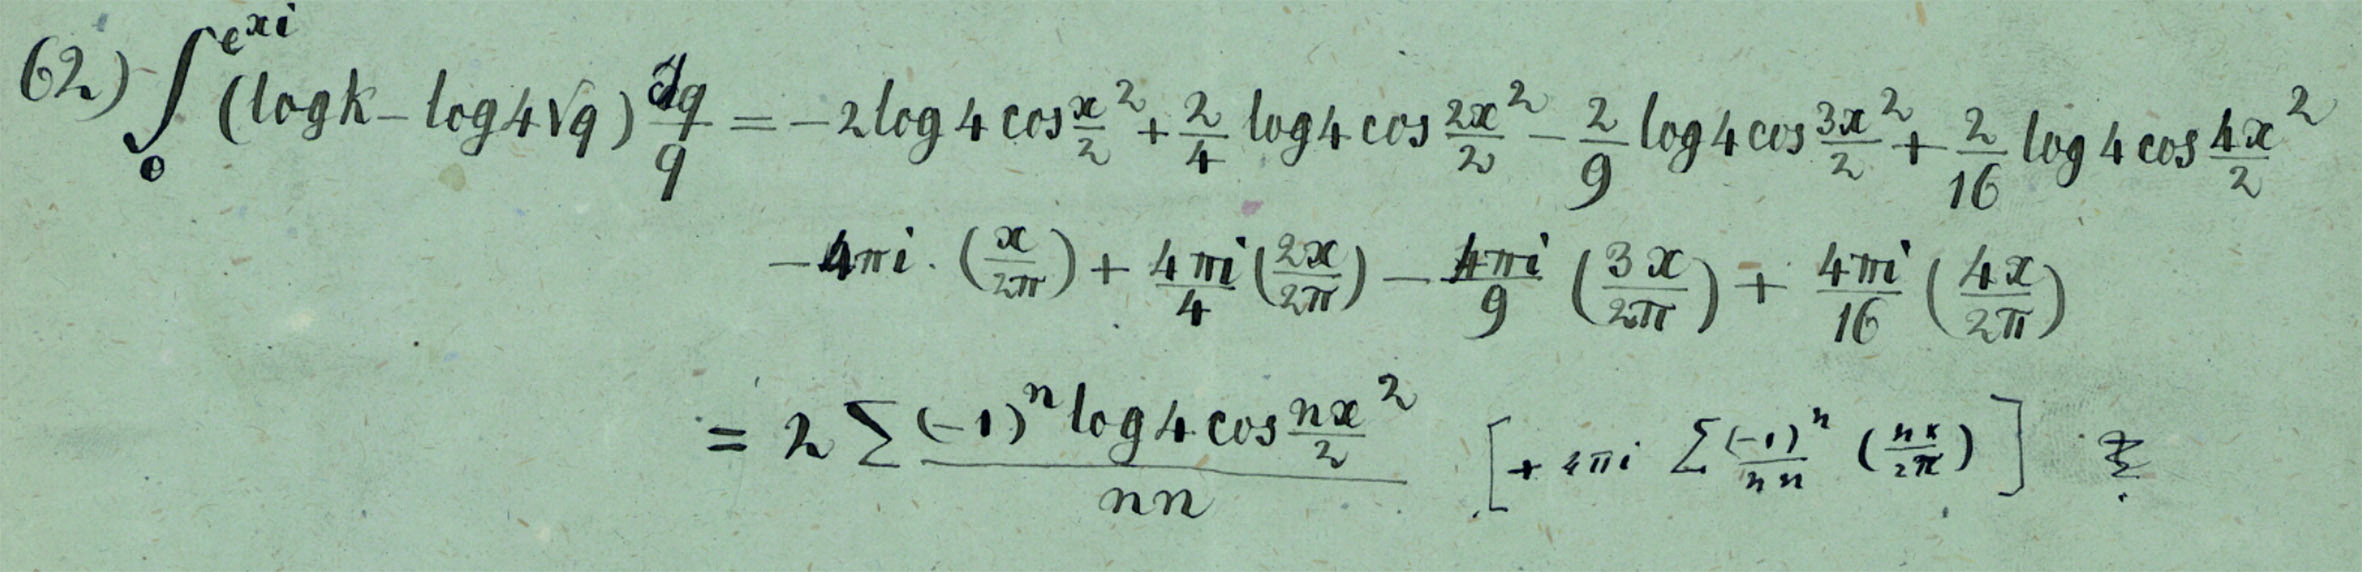 62.) ∫₀^{e^{xi}} (log k − log 4√q) dq/q = −2 log 4 cos x/2 ² + 2/4 log 4 cos 2x/2 ² − 2/9 log 4 cos 3x/2 ² + 2/16 log 4 cos 4x/2 ²
− 4πi · (x/2π) + 4πi/4 (2x/2π) − 4πi/9 (3x/2π) + 4πi/16 (4x/2π)
= 2 Σ (−1)^n log 4 cos nx/2 ² / nn [+ 4πi Σ (−1)^n / nn (nx/2π)]